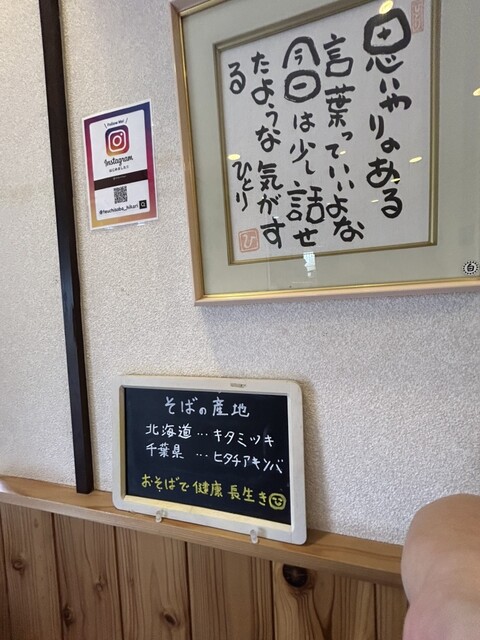 思いやりのある
言葉っていいよな
今日は少し話せ
たような気がす
る
ひとり
\ Follow Me! /
Instagram
はじめました!!
そばの産地
北海道…キタミツキ
千葉県…ヒタチアキソバ
おそばで健康長生き